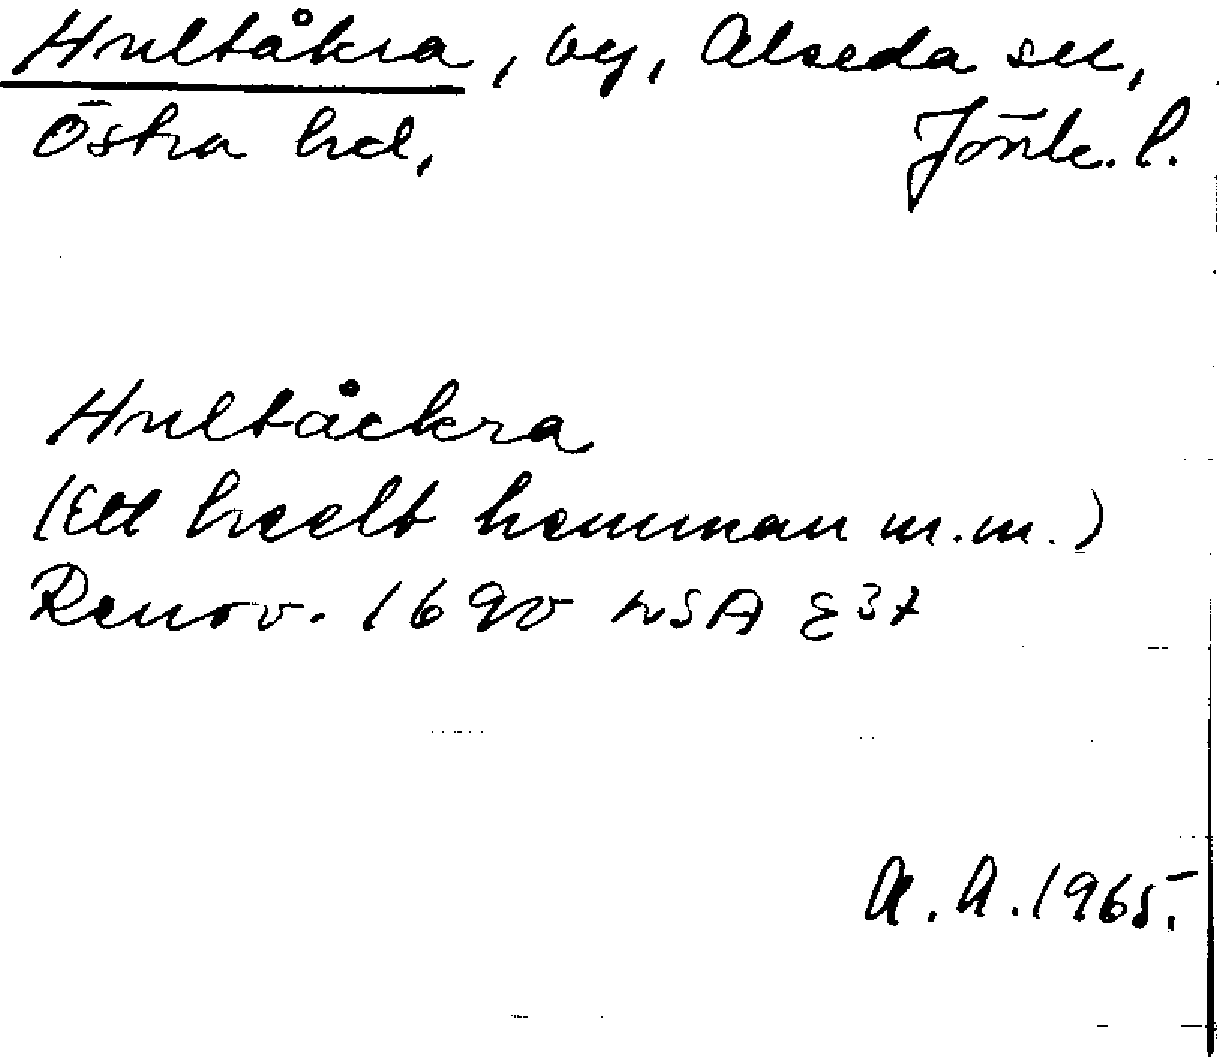 Hultåkra, by, Alseda sn,
Östra hd, Jönk. l.
Hultåckra
(Ett heelt hemman m.m.)
Renov. 1690 LSA E 37
A. A. 1965.